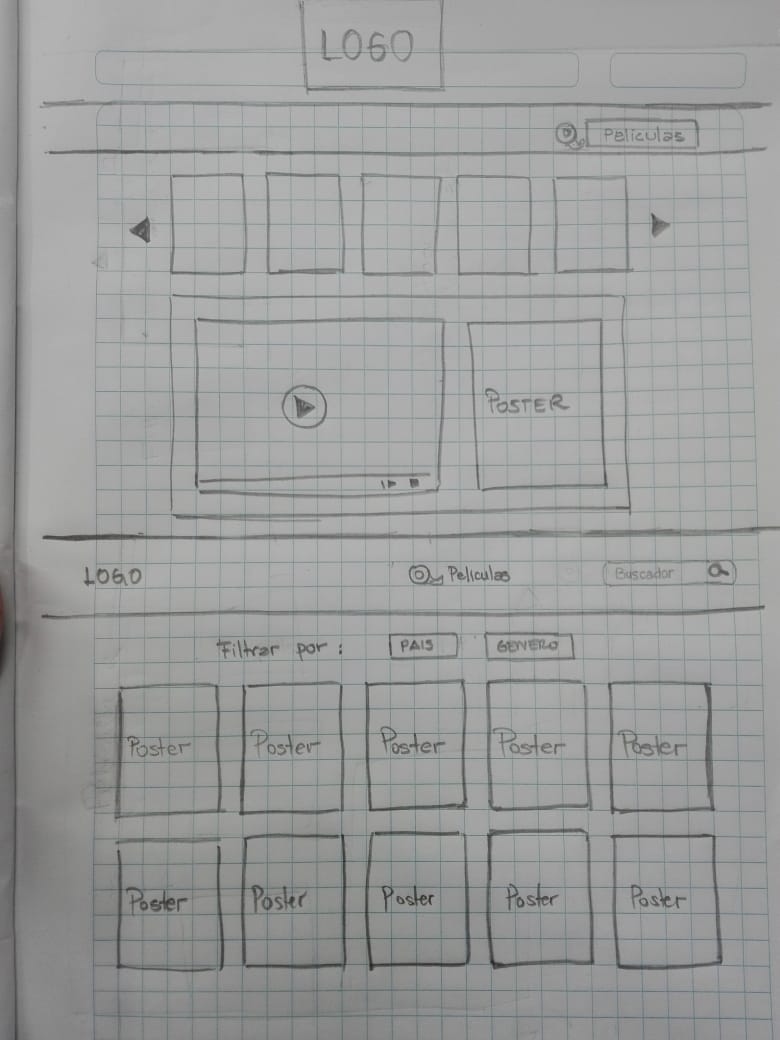 LOGO
Películas
POSTER
LOGO Películas Buscador
Filtrar por : PAIS GENERO
Poster Poster Poster Poster Poster
Poster Poster Poster Poster Poster